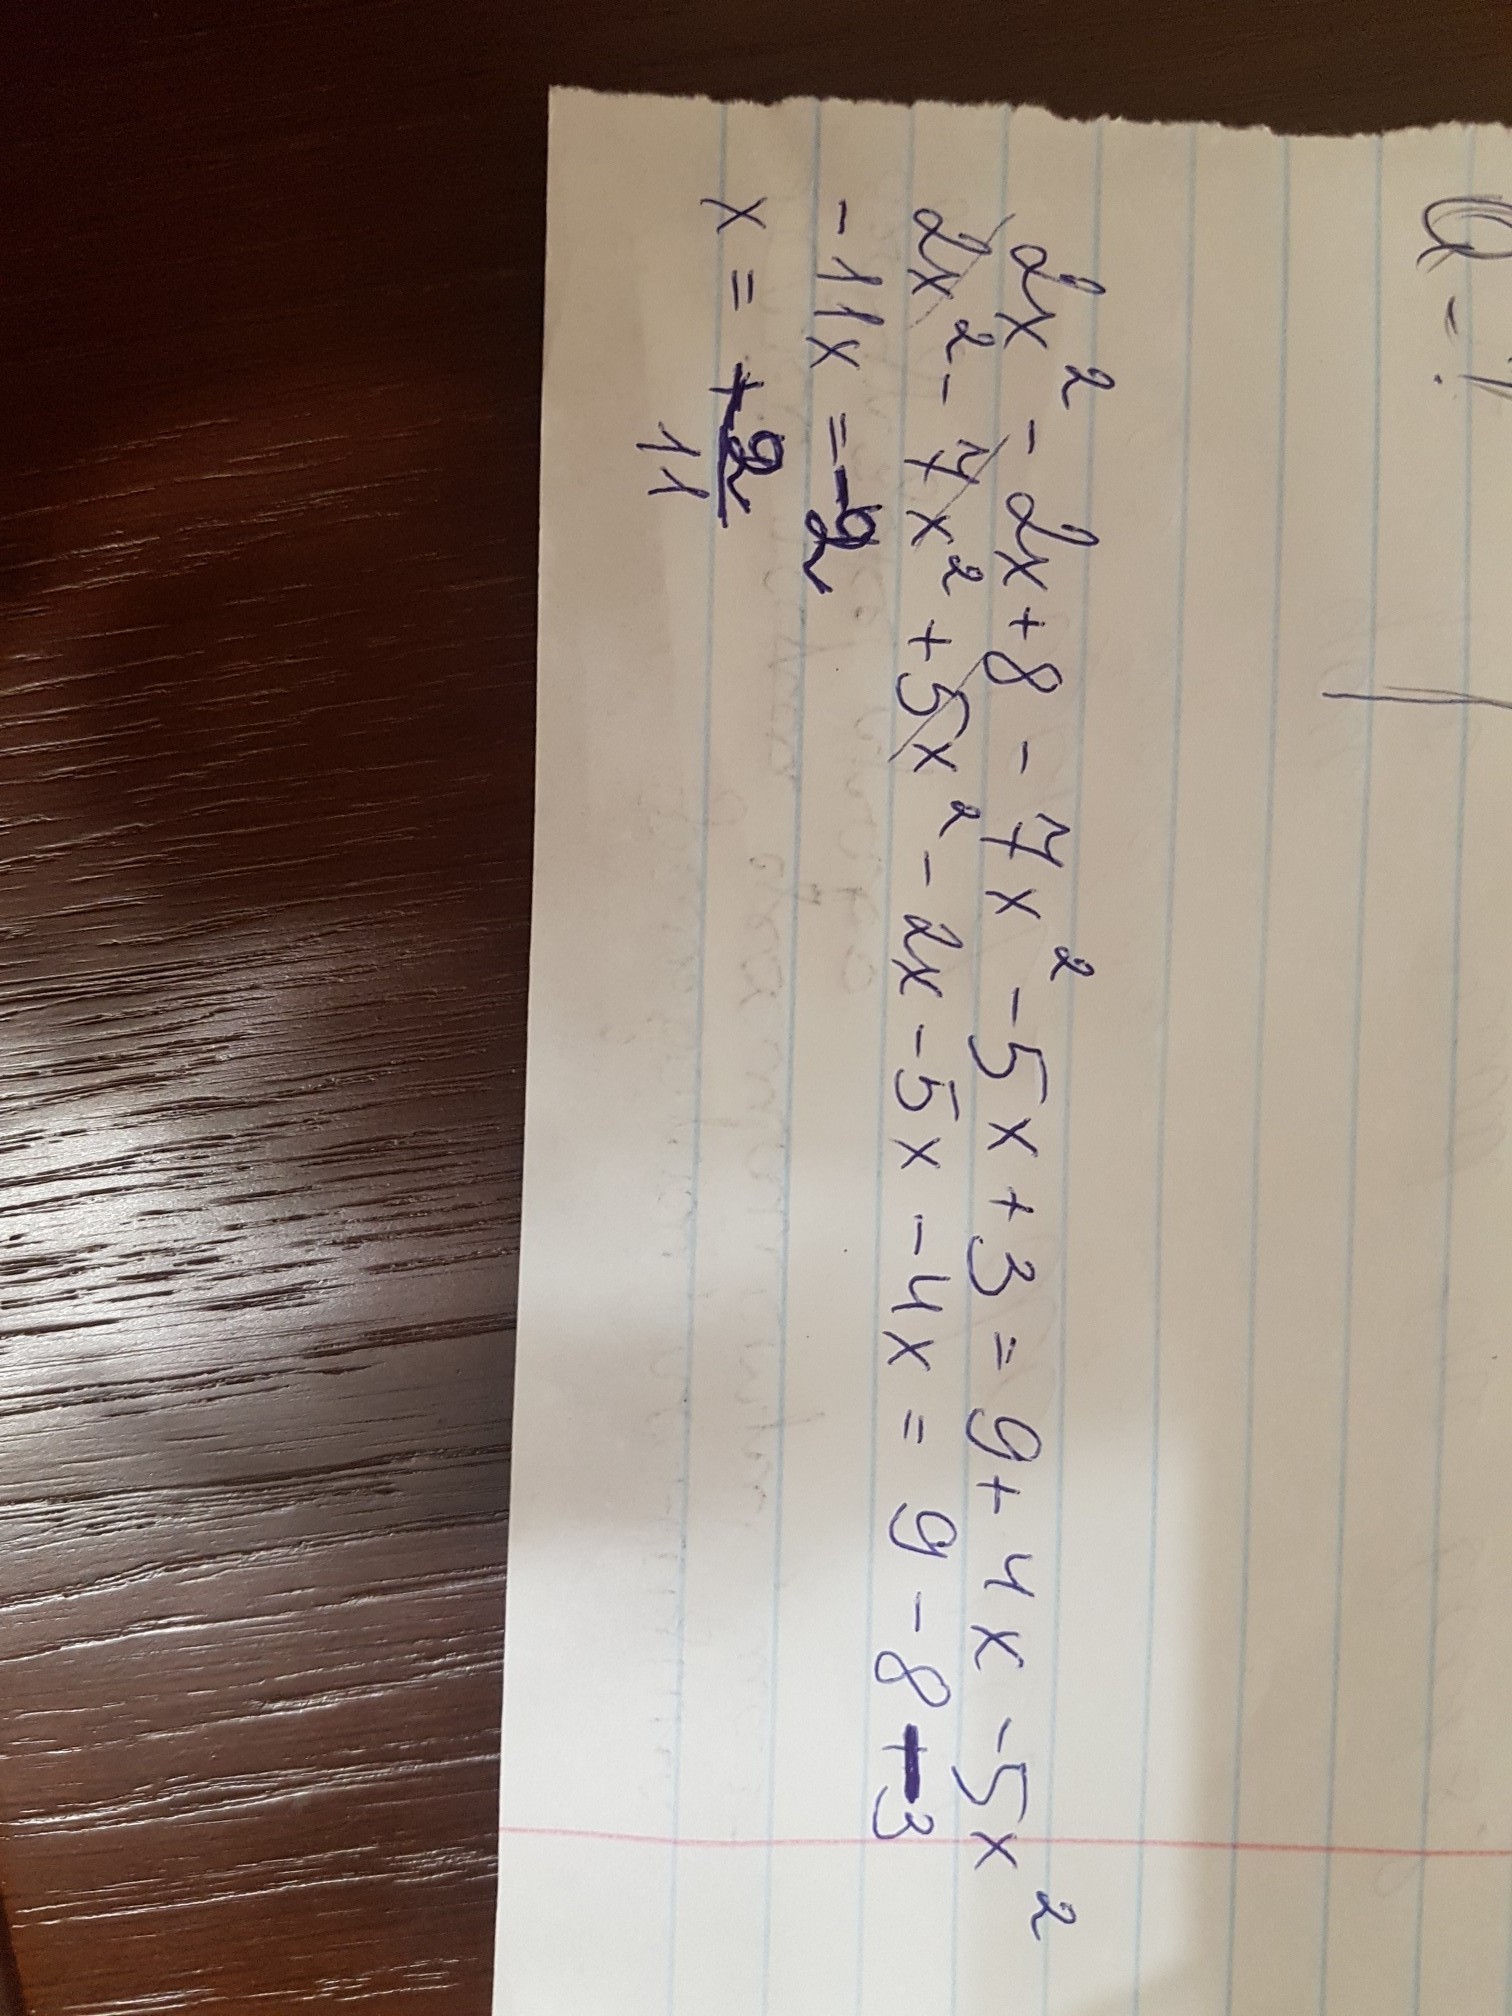 2x² - 2x + 8 - 7x² - 5x + 3 = 9 + 4x - 5x²
2x² - 7x² + 5x² - 2x - 5x - 4x = 9 - 8 - 3
- 11x = -2
x = + 2/11